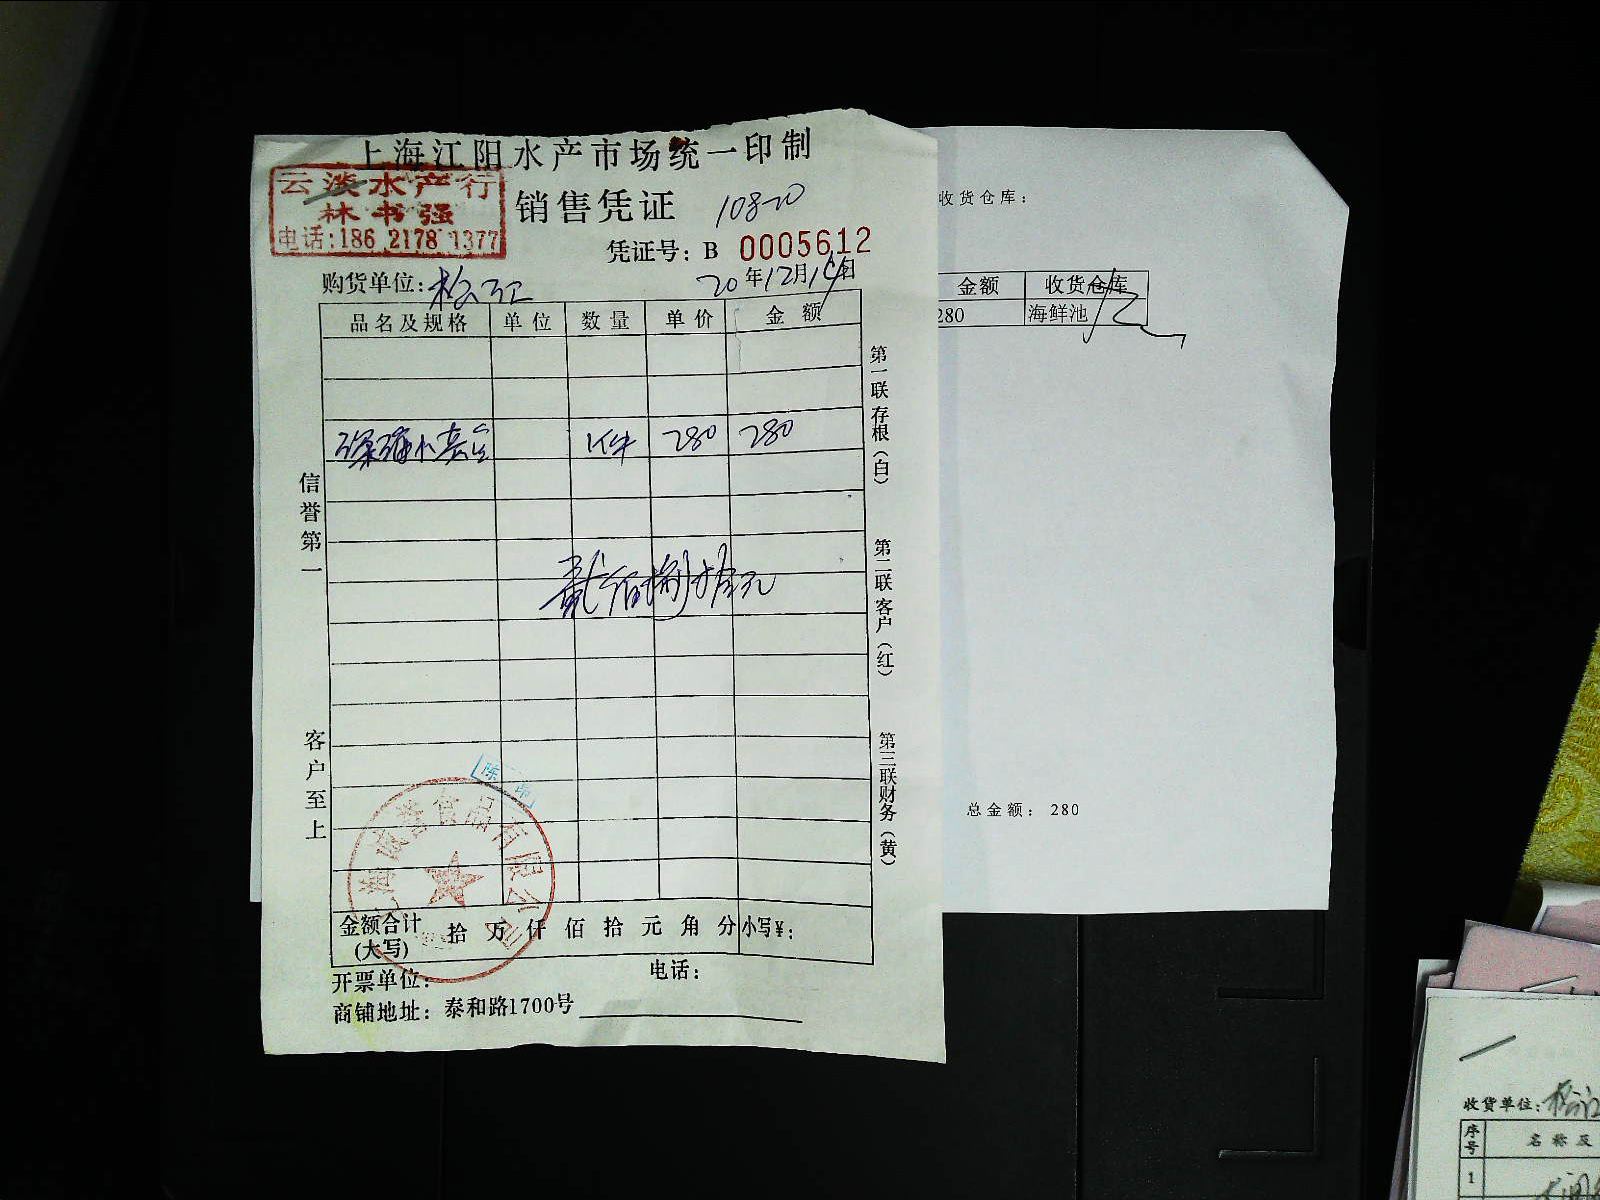 上海江阳水产市场统一印制
云淡水产行
林书强
电话:186 2178 1377
销售凭证
凭证号: B 0005612
购货单位: 松江
20年12月1日
品名及规格 单位 数量 单价 金额
1件 280 280
贰佰捌拾元
信誉第一
客户至上
第一联存根(白)
第二联客户(红)
第三联财务(黄)
食品有限公司
金额合计(大写) 拾万仟佰拾元角分 小写¥:
开票单位: 电话:
商铺地址: 泰和路1700号
收货仓库:
金额 收货仓库
280 海鲜池
总金额: 280
收货单位: 松江
序号 名称及
1